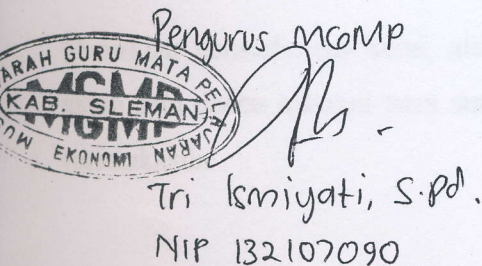 Pengurus MGMP
ARAH GURU MATA PELAJARAN
MGMP
KAB. SLEMAN
UM EKONOMI
Tri Ismiyati, S.Pd.
NIP 132107090